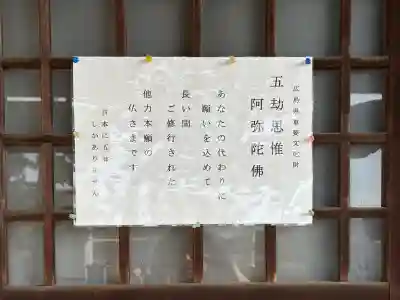 広島県重要文化財
五劫思惟
阿弥陀佛
あなたの代わりに
願いを込めて
長い間
ご修行された
他力本願の
仏さまです
日本に五体
しかありません